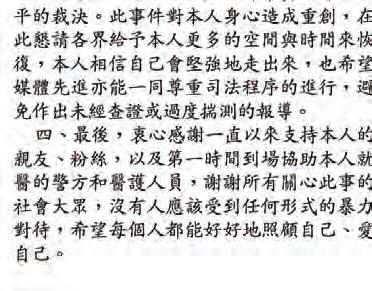 平的裁決。此事件對本人身心造成重創，在
此懇請各界給予本人更多的空間與時間來恢
復，本人相信自己會堅強地走出來，也希望
媒體先進亦能一同尊重司法程序的進行，避
免作出未經查證或過度揣測的報導。
四、最後，衷心感謝一直以來支持本人的
親友、粉絲，以及第一時間到場協助本人就
醫的警方和醫護人員，謝謝所有關心此事的
社會大眾，沒有人應該受到任何形式的暴力
對待，希望每個人都能好好地照顧自己、愛
自己。